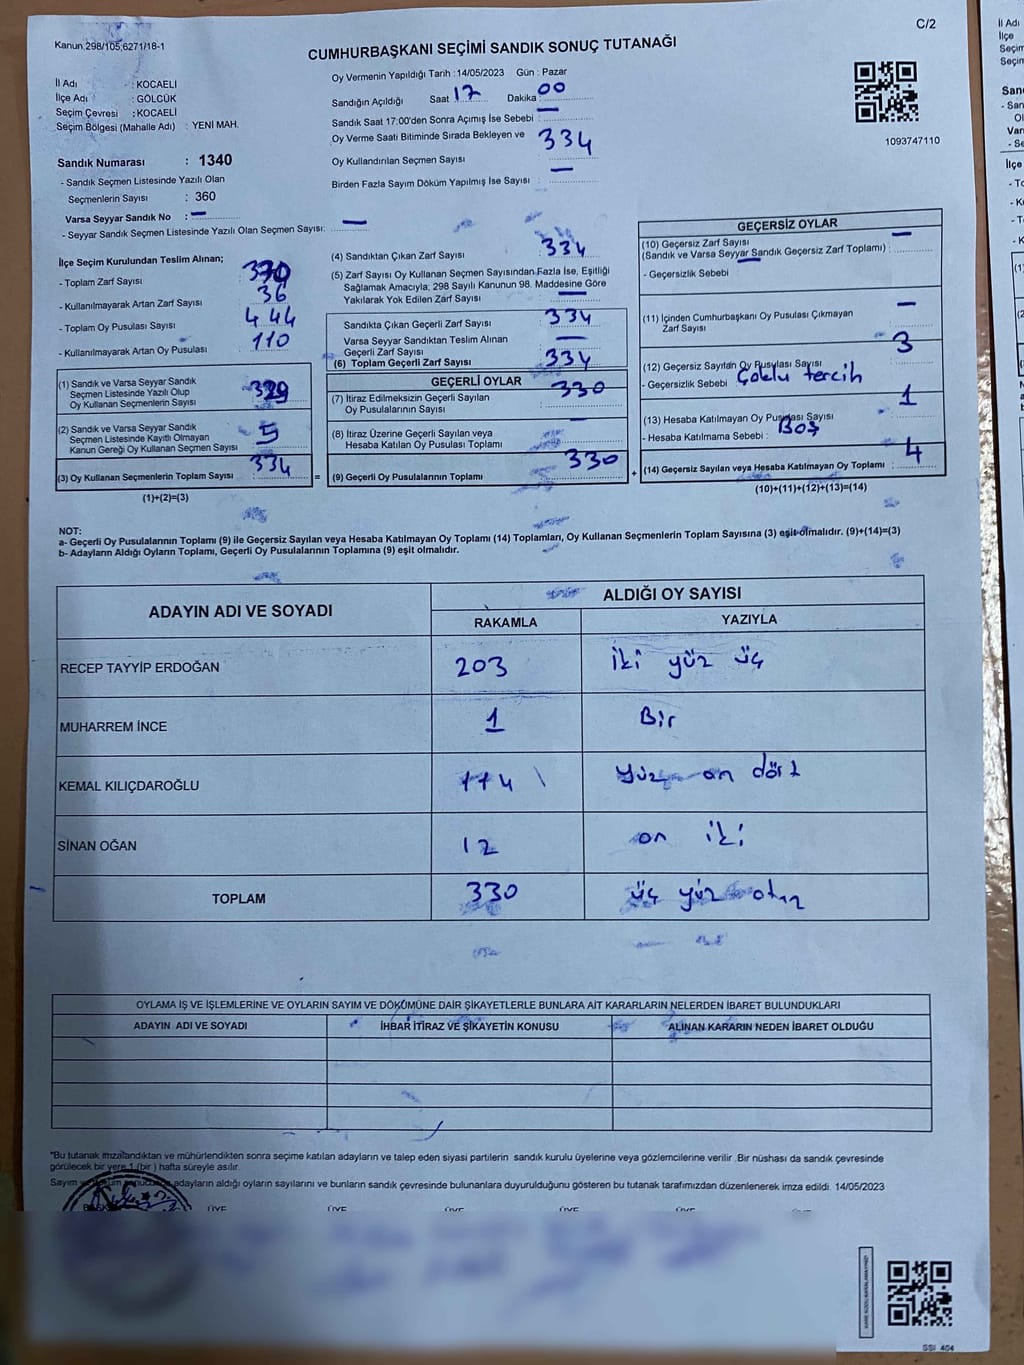 C/2
Kanun 298/105,6271/18-1
CUMHURBAŞKANI SEÇİMİ SANDIK SONUÇ TUTANAĞI
İl Adı : KOCAELİ
İlçe Adı : GÖLCÜK
Seçim Çevresi : KOCAELİ
Seçim Bölgesi (Mahalle Adı) : YENİ MAH.
Sandık Numarası : 1340
- Sandık Seçmen Listesinde Yazılı Olan
Seçmenlerin Sayısı : 360
Varsa Seyyar Sandık No : —
- Seyyar Sandık Seçmen Listesinde Yazılı Olan Seçmen Sayısı: —
Oy Vermenin Yapıldığı Tarih : 14/05/2023 Gün : Pazar
Sandığın Açıldığı Saat 17 Dakika 00
Sandık Saat 17:00'den Sonra Açımış İse Sebebi : —
Oy Verme Saati Bitiminde Sırada Bekleyen ve
Oy Kullandırılan Seçmen Sayısı : 334
Birden Fazla Sayım Döküm Yapılmış İse Sayısı : —
1093747110
İlçe Seçim Kurulundan Teslim Alınan;
- Toplam Zarf Sayısı : 370
- Kullanılmayarak Artan Zarf Sayısı : 36
- Toplam Oy Pusulası Sayısı : 444
- Kullanılmayarak Artan Oy Pusulası : 110
(1) Sandık ve Varsa Seyyar Sandık
Seçmen Listesinde Yazılı Olup
Oy Kullanan Seçmenlerin Sayısı : 329
(2) Sandık ve Varsa Seyyar Sandık
Seçmen Listesinde Kayıtlı Olmayan
Kanun Gereği Oy Kullanan Seçmen Sayısı : 5
(3) Oy Kullanan Seçmenlerin Toplam Sayısı : 334
(1)+(2)=(3)
=
(4) Sandıktan Çıkan Zarf Sayısı : 334
(5) Zarf Sayısı Oy Kullanan Seçmen Sayısından Fazla İse, Eşitliği
Sağlamak Amacıyla; 298 Sayılı Kanunun 98. Maddesine Göre
Yakılarak Yok Edilen Zarf Sayısı : —
Sandıkta Çıkan Geçerli Zarf Sayısı : 334
Varsa Seyyar Sandıktan Teslim Alınan
Geçerli Zarf Sayısı : —
(6) Toplam Geçerli Zarf Sayısı : 334
GEÇERLİ OYLAR
(7) İtiraz Edilmeksizin Geçerli Sayılan
Oy Pusulalarının Sayısı : 330
(8) İtiraz Üzerine Geçerli Sayılan veya
Hesaba Katılan Oy Pusulası Toplamı : —
(9) Geçerli Oy Pusulalarının Toplamı : 330
+
GEÇERSİZ OYLAR
(10) Geçersiz Zarf Sayısı
(Sandık ve Varsa Seyyar Sandık Geçersiz Zarf Toplamı) : —
- Geçersizlik Sebebi : —
(11) İçinden Cumhurbaşkanı Oy Pusulası Çıkmayan
Zarf Sayısı : —
(12) Geçersiz Sayılan Oy Pusulası Sayısı : 3
- Geçersizlik Sebebi : Çoklu tercih
(13) Hesaba Katılmayan Oy Pusulası Sayısı : 1
- Hesaba Katılmama Sebebi : Boş
(14) Geçersiz Sayılan veya Hesaba Katılmayan Oy Toplamı : 4
(10)+(11)+(12)+(13)=(14)
NOT:
a- Geçerli Oy Pusulalarının Toplamı (9) ile Geçersiz Sayılan veya Hesaba Katılmayan Oy Toplamı (14) Toplamları, Oy Kullanan Seçmenlerin Toplam Sayısına (3) eşit olmalıdır. (9)+(14)=(3)
b- Adayların Aldığı Oyların Toplamı, Geçerli Oy Pusulalarının Toplamına (9) eşit olmalıdır.
ADAYIN ADI VE SOYADI ALDIĞI OY SAYISI
RAKAMLA YAZIYLA
RECEP TAYYİP ERDOĞAN 203 İki yüz üç
MUHARREM İNCE 1 Bir
KEMAL KILIÇDAROĞLU 114 yüz on dört
SİNAN OĞAN 12 on iki
TOPLAM 330 üç yüz otuz
OYLAMA İŞ VE İŞLEMLERİNE VE OYLARIN SAYIM VE DÖKÜMÜNE DAİR ŞİKAYETLERLE BUNLARA AİT KARARLARIN NELERDEN İBARET BULUNDUKLARI
ADAYIN ADI VE SOYADI İHBAR İTİRAZ VE ŞİKAYETİN KONUSU ALINAN KARARIN NEDEN İBARET OLDUĞU
*Bu tutanak imzalandıktan ve mühürlendikten sonra seçime katılan adayların ve talep eden siyasi partilerin sandık kurulu üyelerine veya gözlemcilerine verilir. Bir nüshası da sandık çevresinde
görülecek bir yere 1 (bir) hafta süreyle asılır.
Sayım adayların aldığı oyların sayılarını ve bunların sandık çevresinde bulunanlara duyurulduğunu gösteren bu tutanak tarafımızdan düzenlenerek imza edildi. 14/05/2023
ÜYE ÜYE ÜYE ÜYE ÜYE
SSI 404